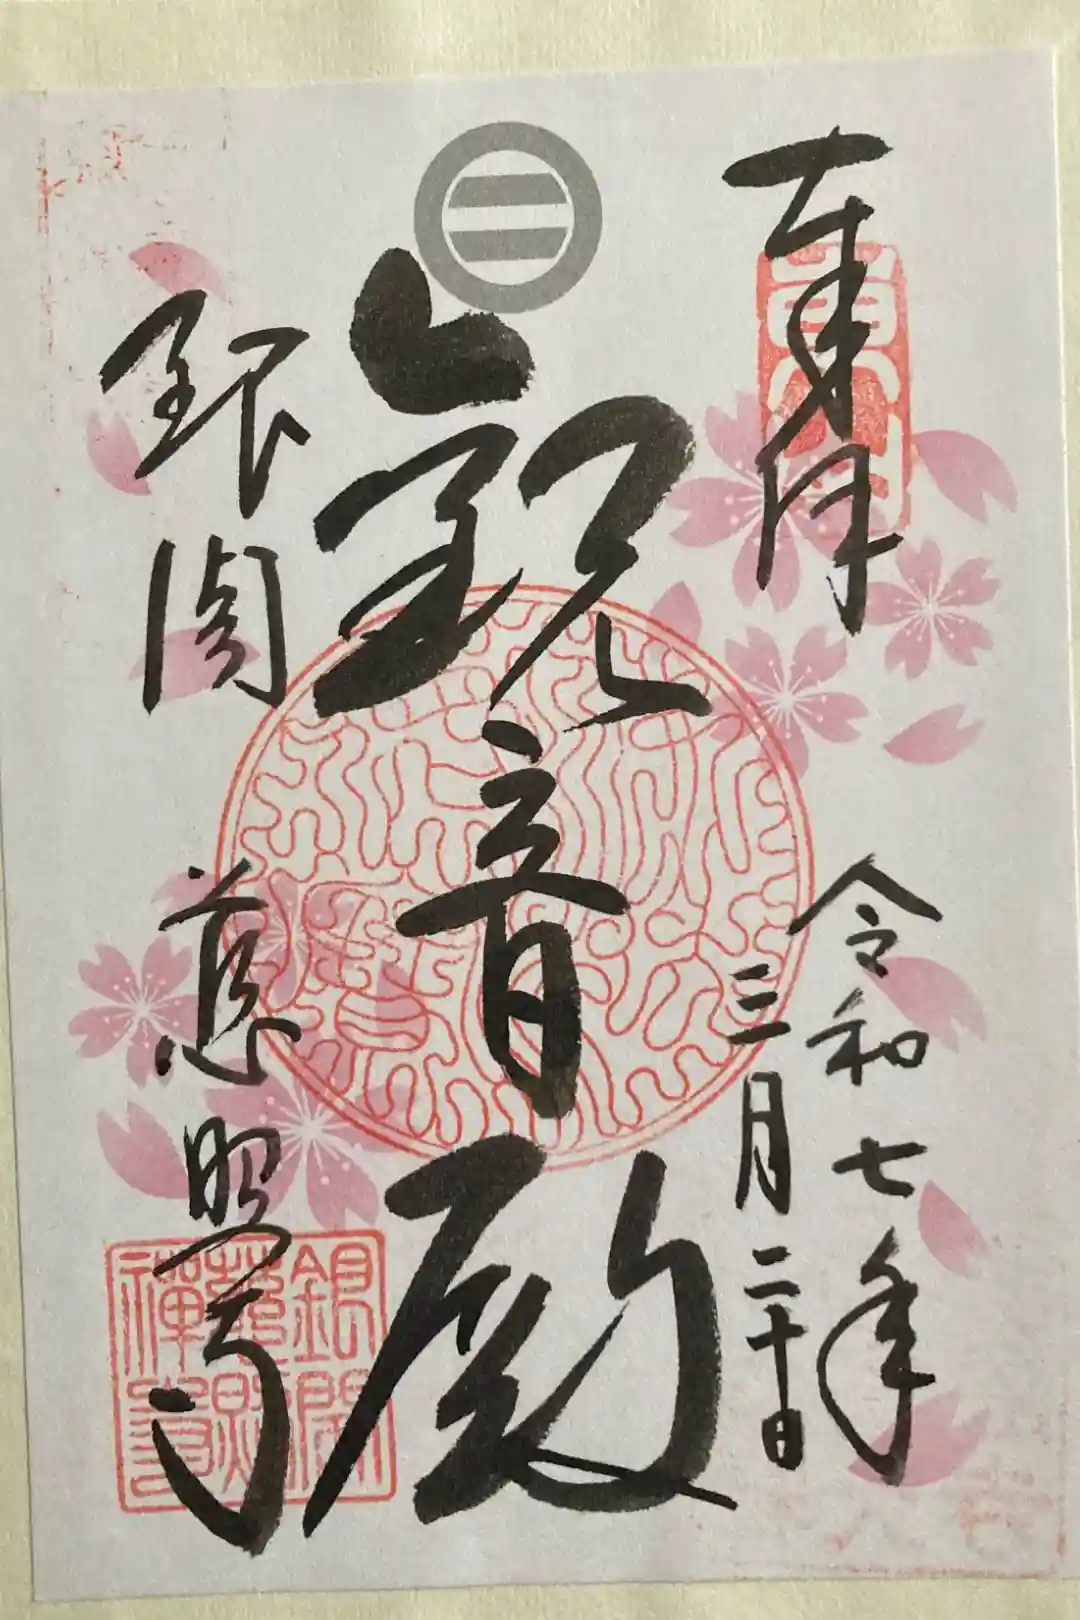 奉拝
令和七年
三月二十日
観音殿
銀閣 慈照寺
銀閣
慈照
禪寺